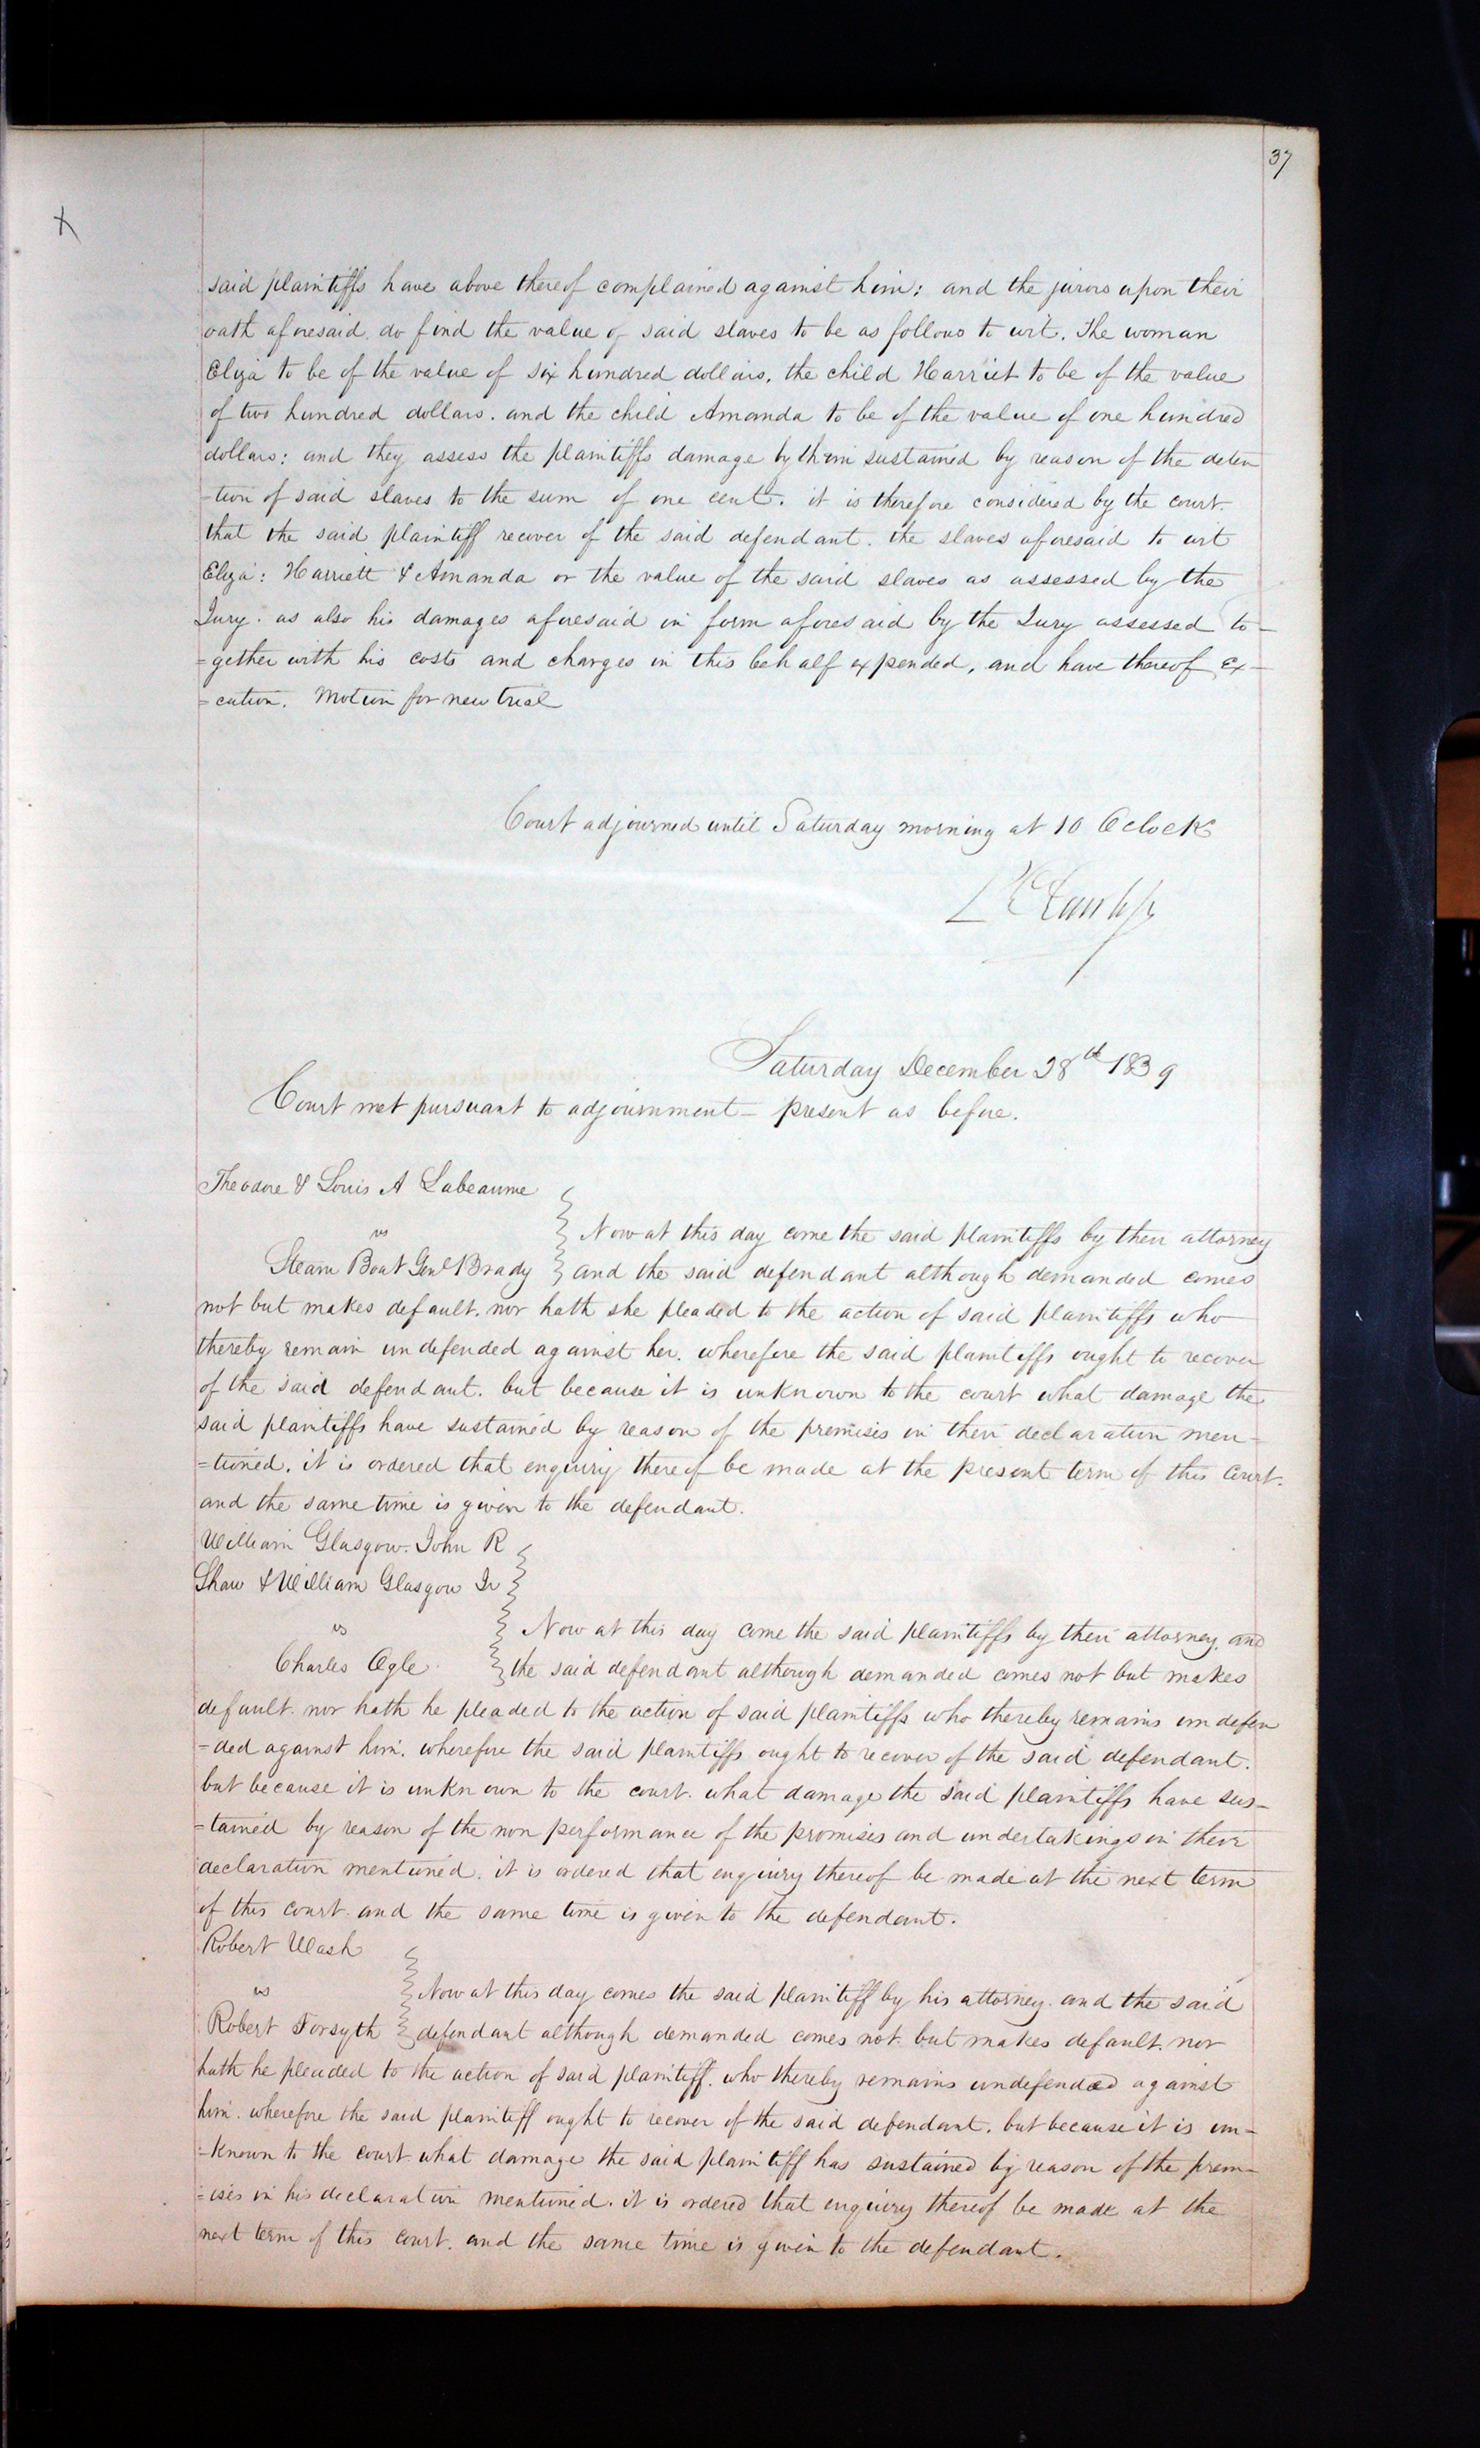 37
X
said plaintiffs have above thereof complained against him; and the jurors upon their
oath aforesaid do find the value of said slaves to be as follows to wit. The woman
Eliza to be of the value of six hundred dollars, the child Harriet to be of the value
of two hundred dollars. and the child Amanda to be of the value of one hundred
dollars; and they assess the plaintiffs damage by them sustained by reason of the deten
-tion of said slaves to the sum of one cent. it is therefore considered by the court.
that the said plaintiff recover of the said defendant. the slaves aforesaid to wit
Eliza: Harriett & Amanda or the value of the said slaves as assessed by the
Jury. as also his damages aforesaid in form aforesaid by the Jury assessed to-
=gether with his costs and charges in this behalf expended, and have thereof ex-
=cution. Motion for new trial
Court adjourned until Saturday morning at 10 Oclock
Saturday December 28th 1839
Court met pursuant to adjournment - present as before.
Theodore & Louis A Labeaume
vs
Now at this day come the said plaintiffs by their attorney
Steam Boat Genl Brady and the said defendant although demanded comes
not but makes default. nor hath she pleaded to the action of said plaintiffs who
thereby remain undefended against her. wherefore the said plaintiffs ought to recover
of the said defendant. but because it is unknown to the court what damage the
said plaintiffs have sustained by reason of the premises in their declaration men-
=tioned. it is ordered that enquiry thereof be made at the present term of this court.
and the same time is given to the defendant.
William Glasgow. John R
Shaw & William Glasgow Jr
vs
Now at this day come the said plaintiffs by their attorney. and
Charles Ogle. the said defendant although demanded comes not but makes
default. nor hath he pleaded to the action of said plaintiffs who thereby remains undefen
-ded against him. wherefore the said plaintiffs ought to recover of the said defendant.
but because it is unknown to the court. what damage the said plaintiffs have sus-
=tained by reason of the non performance of the promises and undertakings in their
declaration mentioned. it is ordered that enquiry thereof be made at the next term
of this court. and the same time is given to the defendant.
Robert Wash
vs
Now at this day comes the said plaintiff by his attorney. and the said
Robert Forsyth defendant although demanded comes not. but makes default. nor
hath he pleaded to the action of said plaintiff. who thereby remains undefended against
him. wherefore the said plaintiff ought to recover of the said defendant. but because it is un-
-known to the court. what damage the said plaintiff has sustained by reason of the prem-
=ises in his declaration mentioned. it is ordered that enquiry thereof be made at the
next term of this court. and the same time is given to the defendant.